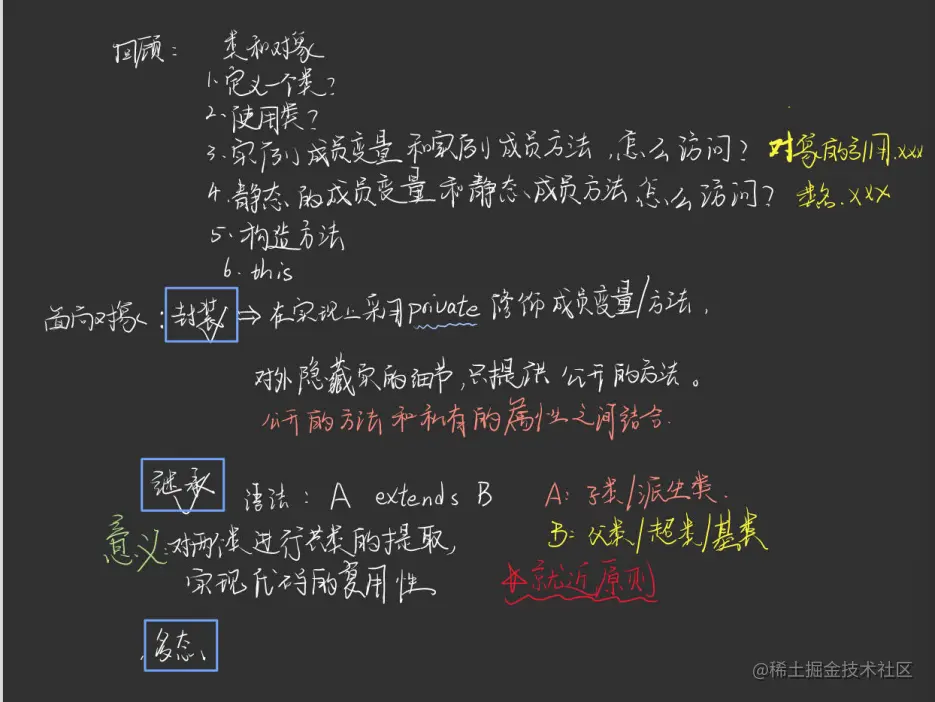 回顾： 类和对象
1.定义一个类？
2.使用类？
3.实例成员变量和实例成员方法，怎么访问？ 对象的引用.xxx
4.静态的成员变量和静态成员方法怎么访问？ 类名.xxx
5.构造方法
6.this
面向对象：封装 ⇒ 在实现上采用private修饰成员变量/方法，
对外隐藏实的细节，只提供公开的方法。
公开的方法和私有的属性之间结合.
继承 语法：A extends B A:子类/派生类.
意义：对两类进行共类的提取， B:父类/超类/基类
实现代码的复用性、 *就近原则
多态、
@稀土掘金技术社区